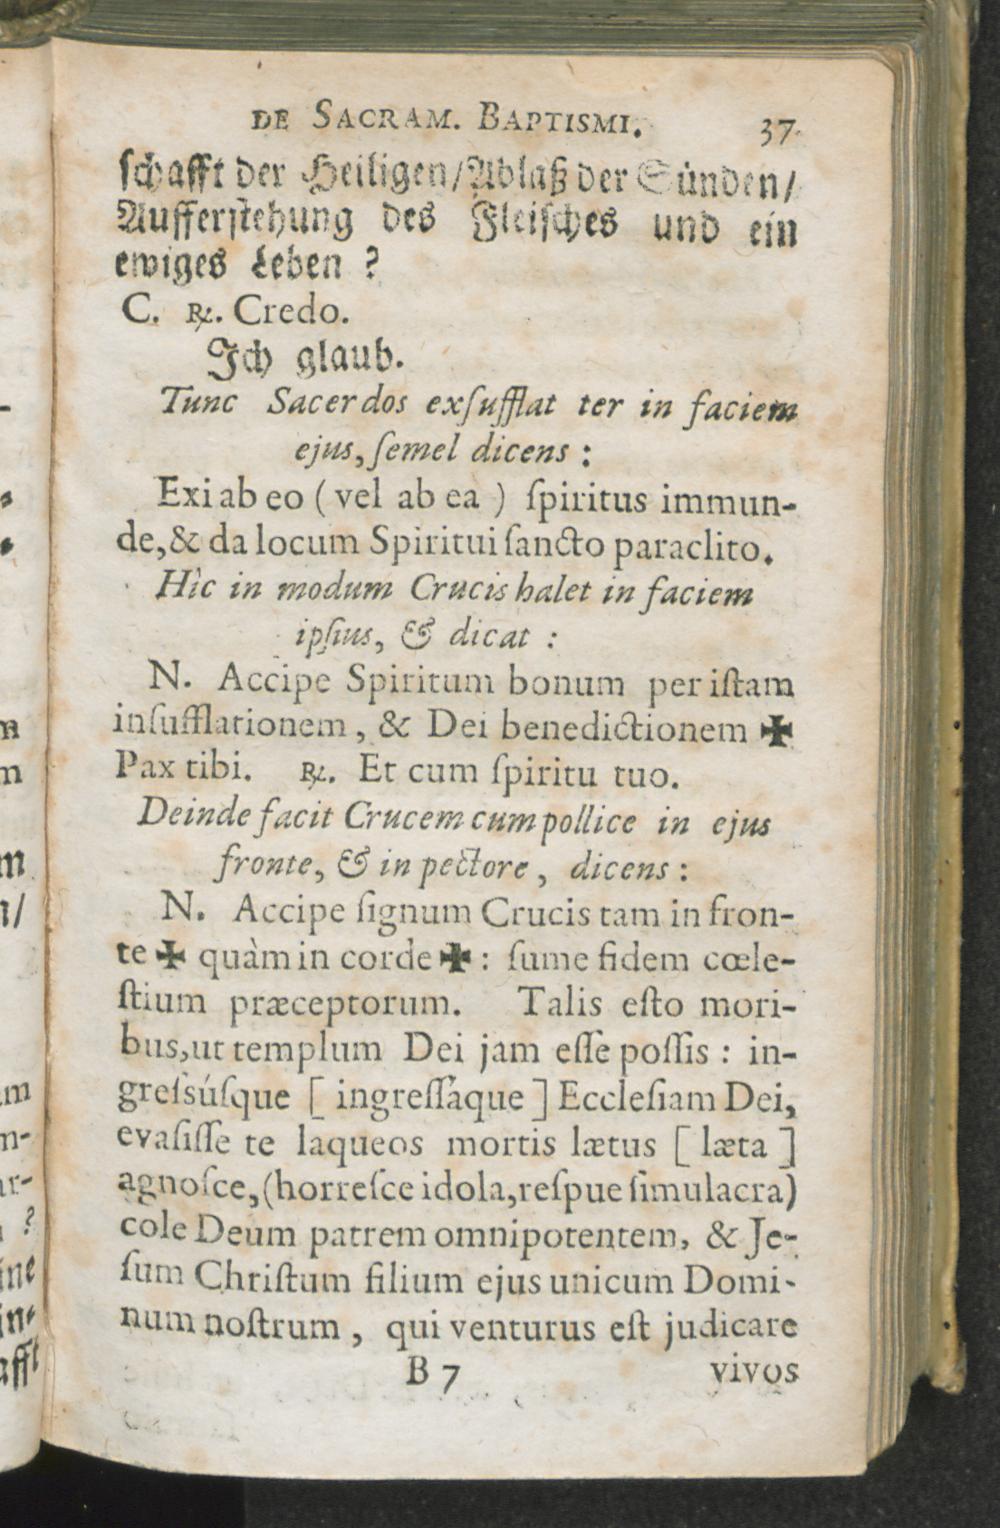 DE SACRAM. BAPTISMI. 37
ſchafft der Heiligen/Ablaß der Sünden/
Aufferſtehung des Fleiſches und ein
ewiges Leben ?
C. ℟. Credo.
Ich glaub.
Tunc Sacerdos exſufflat ter in faciem
ejus, ſemel dicens :
Exi ab eo ( vel ab ea ) ſpiritus immun-
de, & da locum Spiritui ſancto paraclito.
Hìc in modum Crucis halet in faciem
ipſius, & dicat :
N. Accipe Spiritum bonum per iſtam
inſufflationem, & Dei benedictionem ✠
Pax tibi. ℟. Et cum ſpiritu tuo.
Deinde facit Crucem cum pollice in ejus
fronte, & in pectore, dicens :
N. Accipe ſignum Crucis tam in fron-
te ✠ quàm in corde ✠ : ſume fidem cœle-
ſtium præceptorum. Talis eſto mori-
bus, ut templum Dei jam eſſe poſſis : in-
greſsúſque [ ingreſſáque ] Eccleſiam Dei,
evaſiſſe te laqueos mortis lætus [ læta ]
agnoſce, (horreſce idola, reſpue ſimulacra)
cole Deum patrem omnipotentem, & Je-
ſum Chriſtum filium ejus unicum Domi-
num noſtrum, qui venturus eſt judicare
B 7 vivos